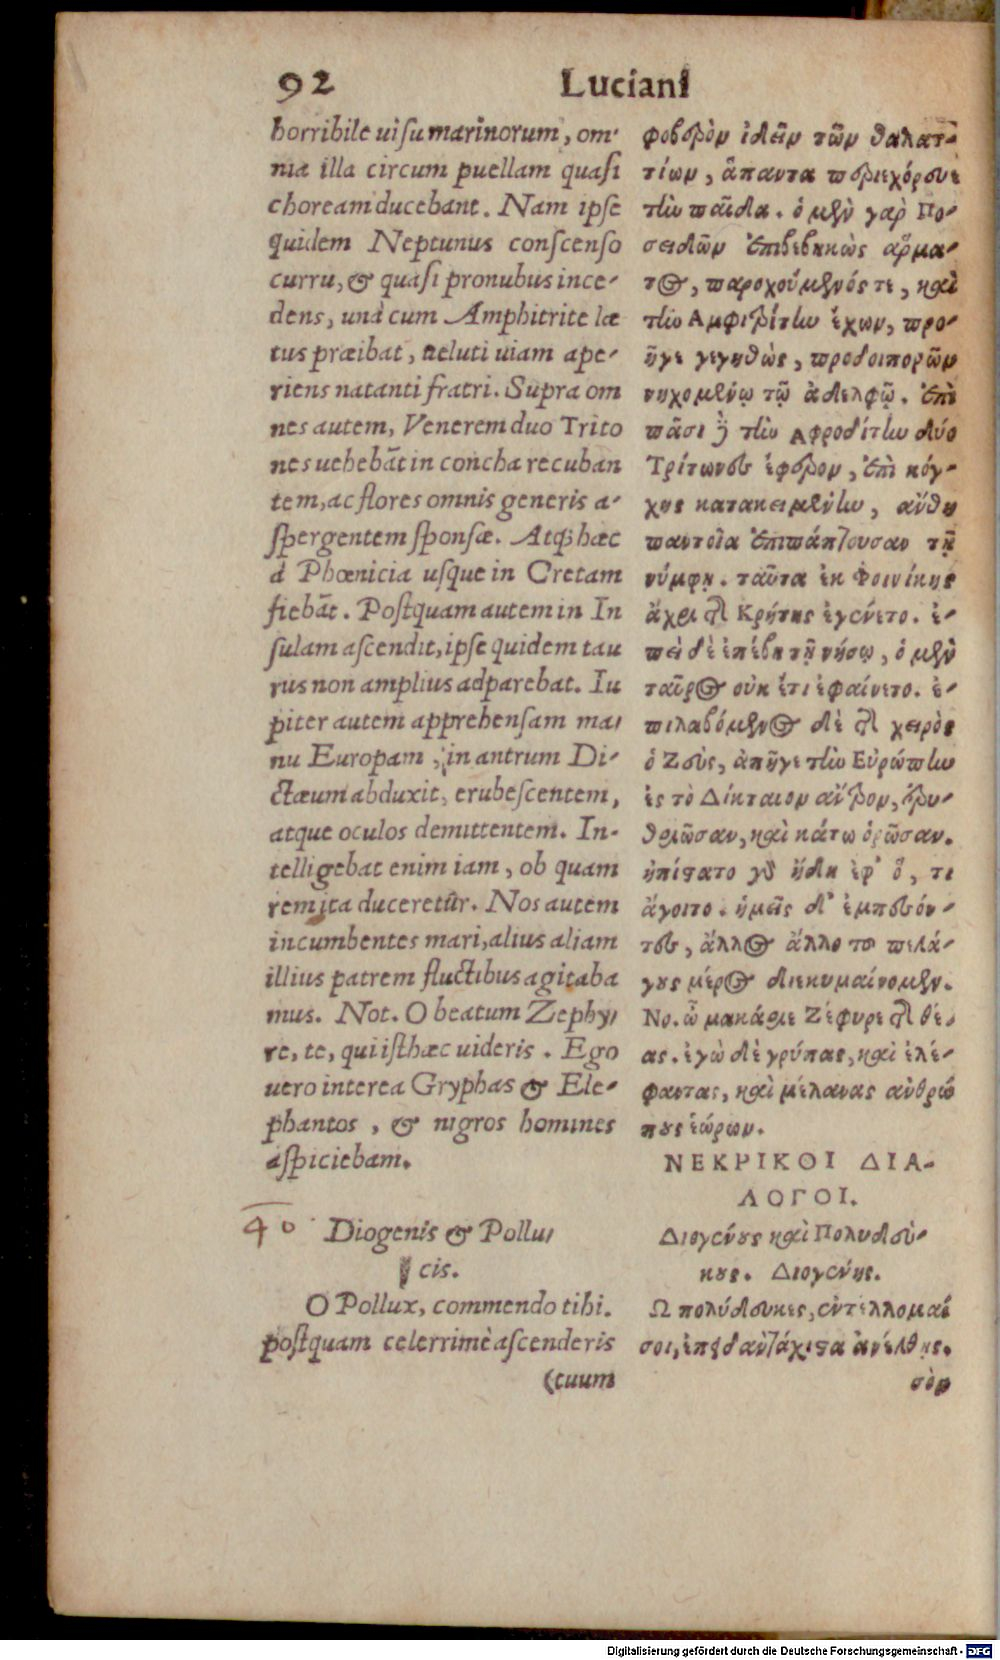 92 Luciani
horribile uisu marinorum, om-
nia illa circum puellam quasi
choream ducebant. Nam ipse
quidem Neptunus conscenso
curru, & quasi pronubus ince-
dens, unà cum Amphitrite læ
tus præibat, ueluti uiam ape-
riens natanti fratri. Supra om
nes autem, Venerem duo Trito
nes uehebãt in concha recuban
tem, ac flores omnis generis a-
spergentem sponsæ. Atq; hæc
à Phœnicia usque in Cretam
fiebãt. Postquam autem in In
sulam ascendit, ipse quidem tau
rus non amplius adparebat. Iu
piter autem apprehensam ma-
nu Europam, in antrum Di-
ctæum abduxit, erubescentem,
atque oculos demittentem. In-
telligebat enim iam, ob quam
rem ita duceretur. Nos autem
incumbentes mari, alius aliam
illius patrem fluctibus agitaba
mus. Not. O beatum Zephy-
re, te, qui isthæc uideris. Ego
uero interea Gryphas & Ele-
phantos, & nigros homines
aspiciebam.
40 Diogenis & Pollu-
cis.
O Pollux, commendo tibi.
postquam celerrimè ascenderis
(tuum
φοβερὸν ἰδεῖν τῶν θαλατ-
τίων, ἅπαντα περιεχόρευε
τὴν παῖδα. ὁ μὲν γὰρ Πο-
σειδῶν ἐπιβεβηκὼς ἅρμα-
τος, παροχούμενός τε, καὶ
τὴν Αμφιτρίτην ἔχων, προ-
ῆγε γεγηθὼς, προοδοιπορῶν
νηχομένῳ τῷ ἀδελφῷ. ἐπὶ
πᾶσι δὲ τὴν Αφροδίτην δύο
Τρίτωνες ἔφερον, ἐπὶ κόγ-
χης κατακειμένην, ἄνθη
παντοῖα ἐπιπάττουσαν τῇ
νύμφῃ. ταῦτα ἐκ Φοινίκης
ἄχρι τῆς Κρήτης ἐγένετο. ἐ-
πεὶ δὲ ἐπέβη τῇ νήσῳ, ὁ μὲν
ταῦρος οὐκ ἔτι ἐφαίνετο. ἐ-
πιλαβόμενος δὲ τῆς χειρὸς
ὁ Ζεὺς, ἀπῆγε τὴν Εὐρώπην
ἐς τὸ Δίκταιον ἄντρον, ἐρυ-
θριῶσαν, καὶ κάτω ὁρῶσαν.
ἠπίστατο γὰρ ἤδη ἐφ' ὅ, τι
ἄγοιτο. ἡμεῖς δ' ἐμπεσόν-
τες, ἄλλος ἄλλο τοῦ πελά-
γους μέρος διεκυμαίνομεν.
Νο. ὦ μακάριε Ζέφυρε τῆς θέ-
ας. ἐγὼ δὲ γρύπας, καὶ ἐλέ-
φαντας, καὶ μέλανας ἀνθρώ
πους ἑώρων.
ΝΕΚΡΙΚΟΙ ΔΙΑ-
ΛΟΓΟΙ.
Διογένους καὶ Πολυδεύ-
κους. Διογένης.
Ω πολύδευκες, ἐντέλλομαί
σοι, ἐπειδὰν τάχιστα ἀνέλθῃς.
σὸν
Digitalisierung gefördert durch die Deutsche Forschungsgemeinschaft - DFG